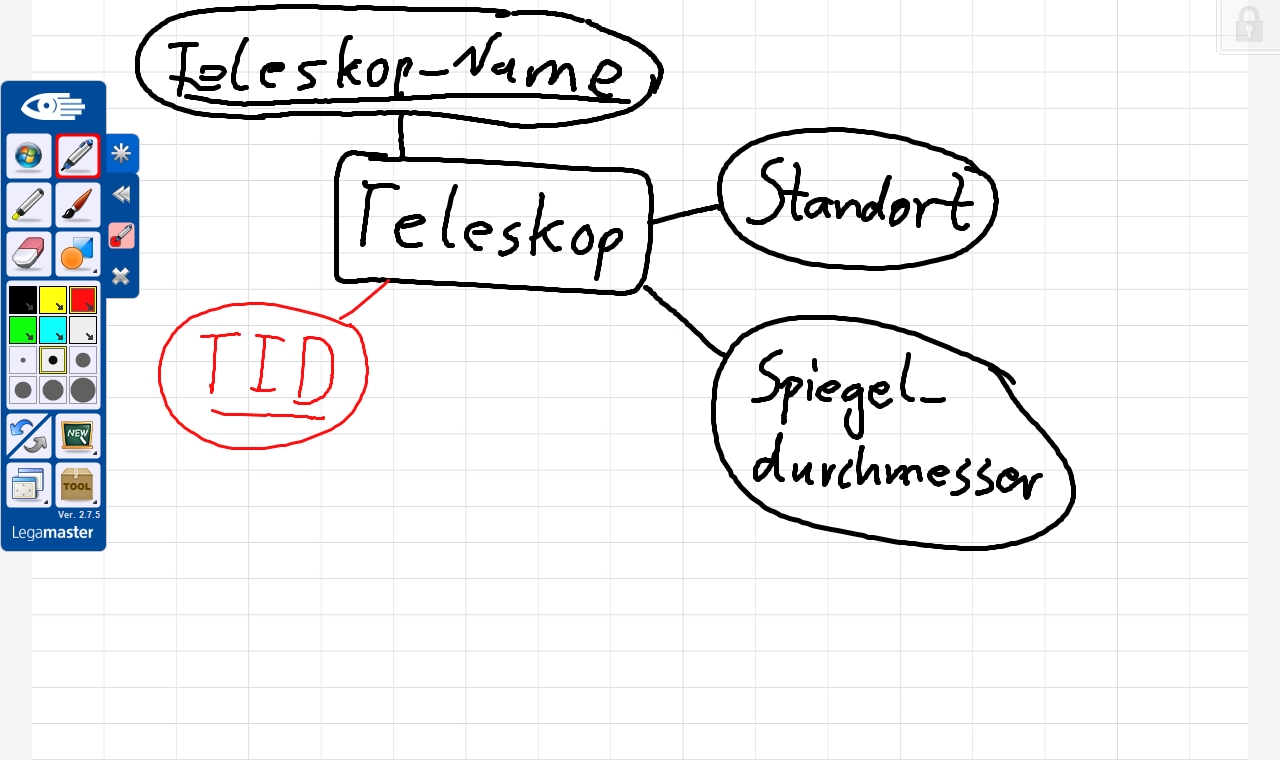 Teleskop-Name
Teleskop
Standort
TID
Spiegel-
durchmesser
NEW
TOOL
Ver. 2.7.5
Legamaster